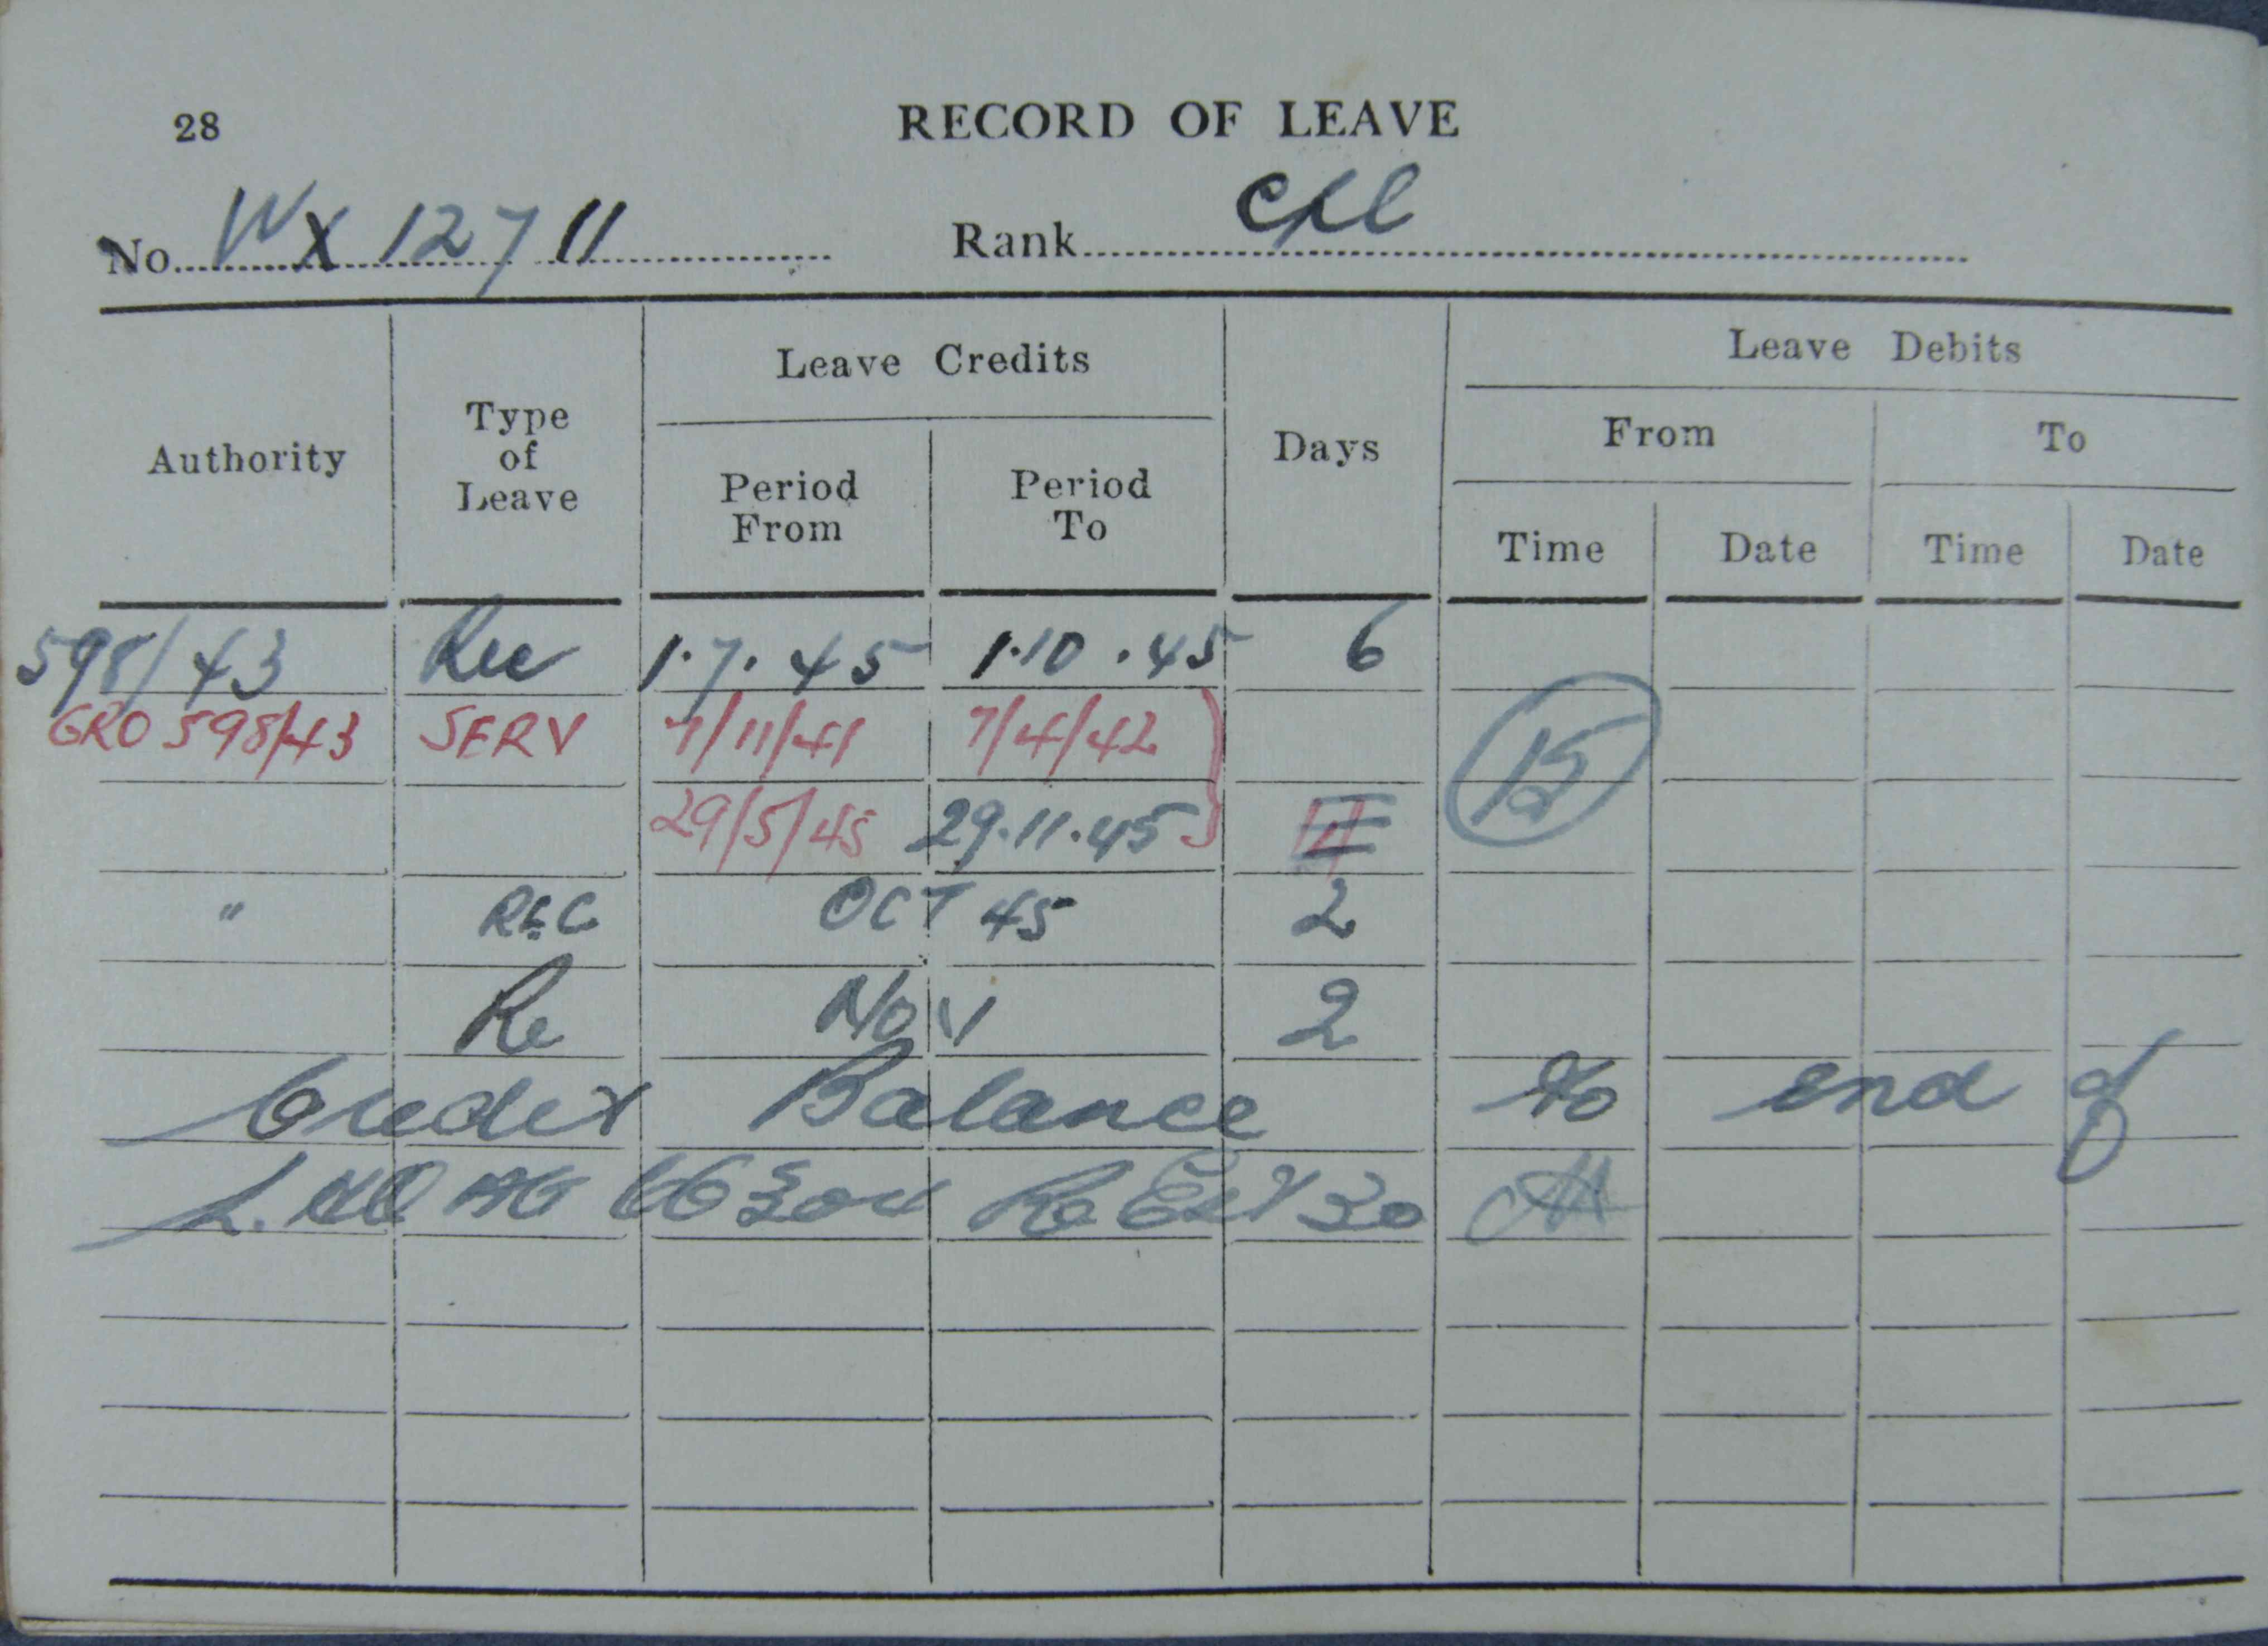 28
RECORD OF LEAVE
No. WX 12711 Rank Cpl
Authority Type of Leave Leave Credits Days Leave Debits
Period From Period To From To
Time Date Time Date
598/43 Rec 1.7.45 1.10.45 6
GRO 598/43 SERV 7/11/41 7/4/42
29/5/45 29.11.45 15
" REC OCT 45 2
Re Nov 2
Credit Balance to end of
30